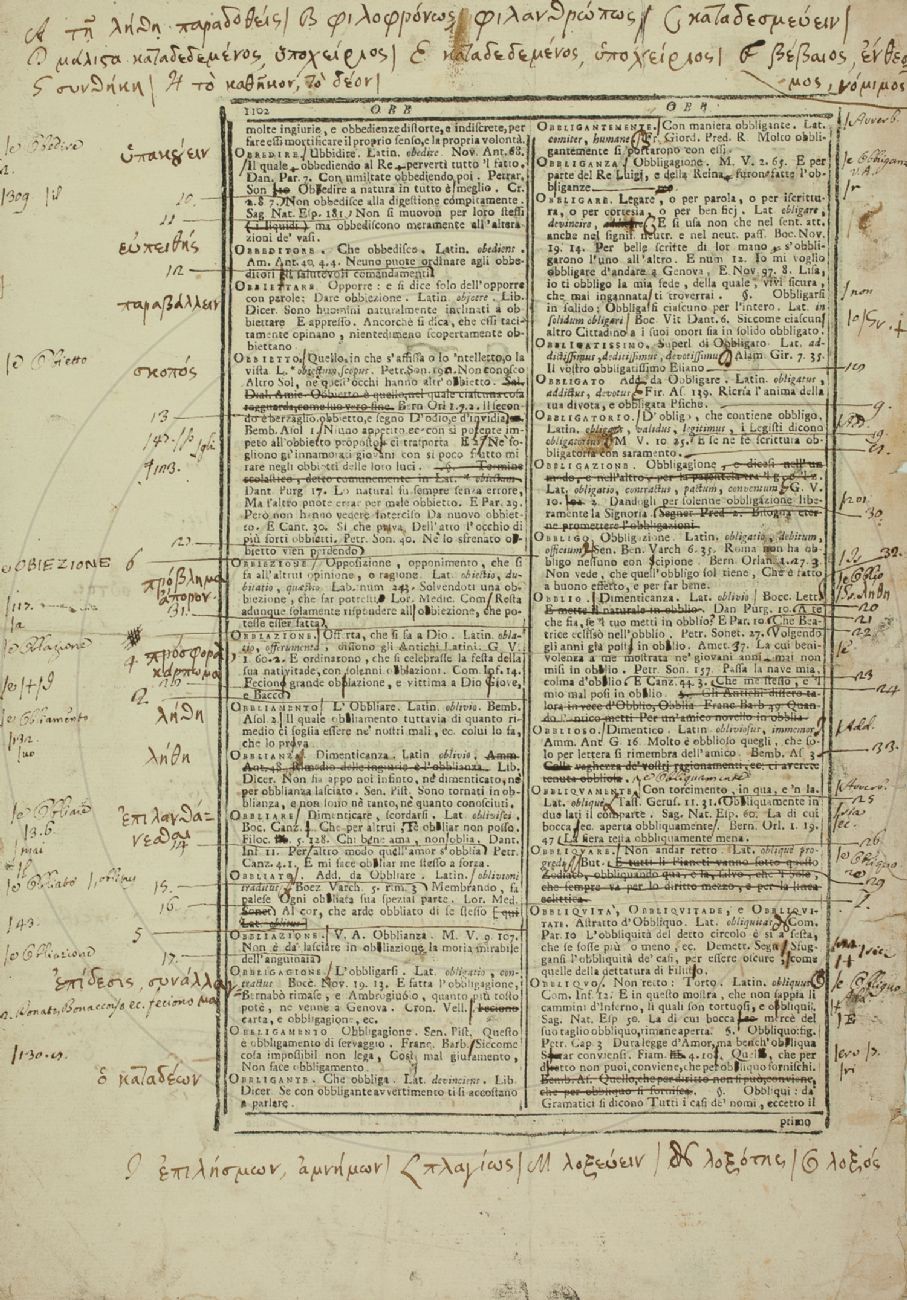 A τῇ λήθῃ παραδοθείς / B φιλοφρόνως φιλανθρώπως / C καταδεσμεύειν /
D μάλιστα καταδεδεμένος, ὑποχείριος / E καταδεδεμένος, ὑποχείριος / F βέβαιος, ἔνθεσ
μος, νόμιμος
G συνθήκη / H τὸ καθῆκον, τὸ δέον /
1102 OBB
molte ingiurie, e obbedienze distorte, e indiscrete, per
fare essi mortificare il proprio senso, e la propria volontà.
OBBEDIRE. Ubbidire. Latin. obedire. Nov. Ant. 68.
Il quale obbediendo al Re pervertì tutto 'l fatto.
Dan. Par. 7. Con umiltate obbediendo poi. Petrar.
Obbedire a natura in tutto è meglio. Cr.
2. 8 7. Non obbedisce alla digestione compitamente.
Sag. Nat. Esp. 181. Non si muovon per loro stessi
(i liquidi) ma obbediscono meramente all'altera-
zioni de' vasi.
OBBEDITORE. Che obbedisce. Latin. obediens.
Am. Ant. 40. 4. 4. Neuno puote ordinare agli obbe-
ditori gli salutevoli comandamenti.
OBBIETTARE. Opporre: e si dice solo dell'opporre
con parole: Dare obbiezione. Latin. objcere. Lib.
Dicer. Sono huomini naturalmente inclinati a ob-
biettare. E appresso. Ancorchè si dica, che essi taci-
tamente opinano, nientedimeno scopertamente ob-
biettano.
OBBIETTO. Quello, in che s'affisa o lo 'ntelletto, o la
vista L. obiectum, scopus. Petr. Son. 19. Non conosco
Altro Sol, nè quest'occhi hanno altr'obbietto. Sal.
Dial. Amic. Obbietto è quello, nel quale ciascuna cosa
ragguarda, come suo vero fine. Bern Orl 1. 9. 2. Il secon-
do è berzaglio, obbietto, e segno D'odio e d'invidia.
Bemb. Asol 1. Niuno appetito ec. con sì potente im-
peto all'obbietto propostogli ci trasporta E Ne' so-
gliono gl'innamorati giovani con sì poco frutto mi
rare negli obbietti delle loro luci. §. Termine
scolastico, detto comunemente in Lat. obiectum.
Dant. Purg 17. Lo natural fu sempre senza errore,
Ma l'altro puote errar per male obbietto. E Par. 29.
Però non hanno vedere interciso Da nuovo obbiet-
to. E Cant. 30. Sì che priva Dell'atto l'occhio di
più forti obbietti. Petr. Son. 40. Nè lo sfrenato ob-
bietto vien perdendo.
OBBIEZIONE. Opposizione, opponimento, che si
fa all'altrui opinione, o ragione. Lat. obiectio, du-
bitatio, quaestio. Lab. num 243. Solvendoti una ob-
biezione, che far potresti. Lor. Medic. Com. Resta
adunque solamente rispondere all'obbiezione, che po-
tesse esser fatta.
OBBLAZIONE. Offerta, che si fa a Dio. Latin. obla-
tio, offerumenta, dissono gli Antichi Latini. G. V.
1. 60. 2. E ordinarono, che si celebrasse la festa della
sua natività, con solenni oblazioni. Com. Inf. 14.
Feciono grande oblazione, e vittima a Dio Giove,
e Bacco.
OBBLIAMENTO. L'Obbliare. Latin. oblivio. Bemb.
Asol. 2. Il quale obbliamento tuttavia di quanto ri-
medio ci soglia essere ne' nostri mali, ec. colui lo sa,
che lo prova.
OBBLIANZA. Dimenticanza. Latin oblivio. Amm.
Ant. 48. Rimedio delle ingiurie è l'obblianza. Lib.
Dicer. Non sia appo noi infinto, nè dimenticato, nè
per obblianza lasciato. Sen. Pist. Sono tornati in ob-
blianza, e non sono nè tanto, nè quanto conosciuti.
OBBLIARE. Dimenticare, scordarsi. Lat. oblivisci.
Boc. Canz. Che per altrui, Te obbliar non posso.
Filoc. 5. 128. Chi bene ama, non oblia. Dant.
Inf. 11. Per altro modo quell'amor s'obblia. Petr.
Canz. 4. 1. E mi face obbliar me stesso a forza.
OBBLIATO. Add. da Obbliare. Latin. oblivioni
traditus. Boez Varch. 5. rim. 3 Membrando, fa
palese Ogni obbliata sua spezial parte. Lor. Med.
Sonet. Al cor, che arde obbliato di se stesso E qui
OBBLIAZIONE. V. A. Obblianza. M. V. 9. 107.
Non è da lasciare in obbliazione la moria mirabile
dell'anguinaia.
OBBLIGAGIONE. L'obbligarsi. Lat. obligatio, con-
tractus. Bocc. Nov. 19. 13. E fatta l'obbligagione,
Bernabò rimase, e Ambrogiuolo, quanto più tosto
potè, ne venne a Genova. Cron. Vell. Feciono
carta, e obbligagione, ec.
OBBLIGAMENTO Obbligagione. Sen. Pist. Questo
è obbligamento di servaggio. Franc. Barb. Siccome
cosa impossibil non lega, Così mal giuramento,
Non face obbligamento.
OBBLIGANTE. Che obbliga. Lat. devinciens. Lib.
Dicer. Se con obbligante avvertimento ti si accostano
a parlare.
OBB
OBBLIGANTEMENTE. Con maniera obbligante. Lat.
comiter, humane. Fr. Giord. Pred. R. Molto obbli-
gantemente si portarono con essi.
OBBLIGANZA. Obbligagione. M. V. 2. 65. E per
parte del Re Luigi, e della Reina furono fatte l'ob-
bliganze.
OBBLIGARE. Legare, o per parola, o per iscrittu-
ra, o per cortesia, o per benficj. Lat. obligare,
devincire, E si usa non che nel sent. att.
anche nel signif. neutr. e nel neut. pass. Boc. Nov.
19. 14. Per belle scritte di lor mano s'obbli-
garono l'uno all'altro. E num 12. Io mi voglio
obbligare d'andare a Genova. E Nov. 97. 8. Lisa,
io ti obbligo la mia fede, della quale, vivi sicura,
che mai ingannata ti troverrai. §. Obbligarsi
in solido; Obbligarsi ciascuno per l'intero. Lat. in
solidum obligari. Boc. Vit Dant. 6. Siccome ciascun
altro Cittadino a i suoi onori sia in solido obbligato.
OBBLIGATISSIMO. Superl. di Obbligato. Lat. ad-
dictissimus, deditissimus, devotissimus. Alam. Gir. 7. 35.
Il vostro obbligatissimo Eliano
OBBLIGATO Add. da Obbligare. Latin. obligatus,
addictus, devotus. Fir. As. 139. Ricrìa l'anima della
tua divota, e obbligata Psiche.
OBBLIGATORIO. D'obbligo, che contiene obbligo.
Latin. obligans, validus, legitimus, i Legisti dicono
obligatorius. M. V. 10. 25. E se ne fe scrittura ob-
bligatoria con saramento.
OBBLIGAZIONE. Obbligagione, e dicesi nell'un
modo, e nell'altro
Lat. obligatio, contractus, pactum, conventum. G. V.
10. Dandogli per solenne obbligazione libe-
ramente la Signoria. Segner Pred 2. Bisogna eter-
ne promettere l'obbligazioni.
OBBLIGO. Obbligazione. Latin. obligatio, debitum,
officium. Sen. Ben. Varch 6. 35. Roma non ha ob-
bligo nessuno con Scipione. Bern. Orlan. 1. 27. 3.
Non vede, che quell'obbligo sol tiene, Che è fatto
a buono effetto, e per far bene.
OBBLIO. Dimenticanza. Lat. oblivio. Bocc. Lett.
E mette il naturale in obblio. Dan Purg. 10. A te
che fia, se 'l tuo metti in obblio? E Par. 10 Che Bea-
trice eclissò nell'obblio. Petr. Sonet. 27. Volgendo
gli anni già posti in obblio. Amet. 37. La cui beni-
volenza a me mostrata ne' giovani anni mai non
misi in obblio. Petr. Son. 57. Passa la nave mia
colma d'obblio. E Canz. 44. 3. Che me stesso, e 'l
mio mal posi in obblio. §. Gli Antichi dissero ta-
lora in vece d'Obblio, Obblia. Franc Barb 49 Quan-
do l'antico metti Per un'amico novello in obblia.
OBBLIOSO. Dimentico. Latin. obliviosus, immemor.
Amm. Ant G. 16. Molto è obblioso quegli, che so-
lo per lettera si rimembra dell'amico. Bemb. As. 3
Colla vaghezza de' vostri ragionamenti, ec. ci avereste
tenuta obbliosa. / e Obliquamente
OBBLIQUAMENTE. Con torcimento, in qua, e 'n la.
Lat. oblique. Tass. Gerus. 11. 31. Obbliquamente in
due lati il comparte. Sag. Nat. Esp. 60. La di cui
bocca sec. aperta obbliquamente. Bern. Orl. 1. 19.
47 La fiera tesia obbliquamente.
OBBLIQUARE. Non andar retto. Lat. oblique pro-
gredi. But. E tutti li Pianeti vanno sotto questo
Zodiaco, obbliquando qua, e la, salvo, che 'l Sole,
che sempre va per lo diritto mezzo, e per la linea
eclittica.
OBBLIQUITÀ, OBBLIQUITADE, e OBBLIQUI-
TATE. Astratto d'Obbliquo. Lat. obliquitas. Com.
Par. 10 L'obbliquità del detto circolo è sì a sesta,
che se fosse più o meno, ec. Demetr. Segn. Sfug-
gansi l'obbliquità de' casi, per essere oscure come
quelle della dettatura di Filisto.
OBBLIQUO. Non retto: Torto. Latin. obliquus.
Com. Inf. 12. E in questo mostra, che non sappia li
cammini d'Inferno, li quali son tortuosi, e obbliqui.
Sag. Nat. Esp. 50. La di cui bocca mercè del
suo taglio obbliquo, rimane aperta. §. Obbliquo: fig.
Petr. Cap. 3 Dura legge d'Amor, ma bench'obbliqua
Servar conviensi. Fiam. 4. 10. Quelle, che per
diritto non puoi, conviene, che per obbliquo fornischi.
Bemb. As. Quello, che per diritto non si può, conviene,
che per obbliquo si fornisca. §. Obbliqui: da
Gramatici si dicono Tutti i casi de' nomi, eccetto il
primo
/e Obedire
ὑπακούειν
10.
11.
εὐπειθής
12.
παραβάλλειν
/e Obietto
σκοπός
13
OBIEZIONE 6
πρόβλημα
ἄπορον.
31.
/e Oblazione
4 προσφορά
κάρπωμα
2 λήθη
/e Obliamento
λήθη
/e Obliare
ἐπιλανθά-
νεσθαι
15.
16.
5
17.
/e Obliazione
ἐπίδεσις, συνάλλαγ
μα
/130. 19.
ὁ καταδέων
/Avverb.
/r
/non
19
9.
30.
32.
/e Oblio
λήθη
20
21
22
23
24
/Add.
33.
/Avverb.
25
26
29
/e Obliquo
I ἐπιλήσμων, ἀμνήμων / L πλαγίως / M λοξεύειν / N λοξότης / O λοξός